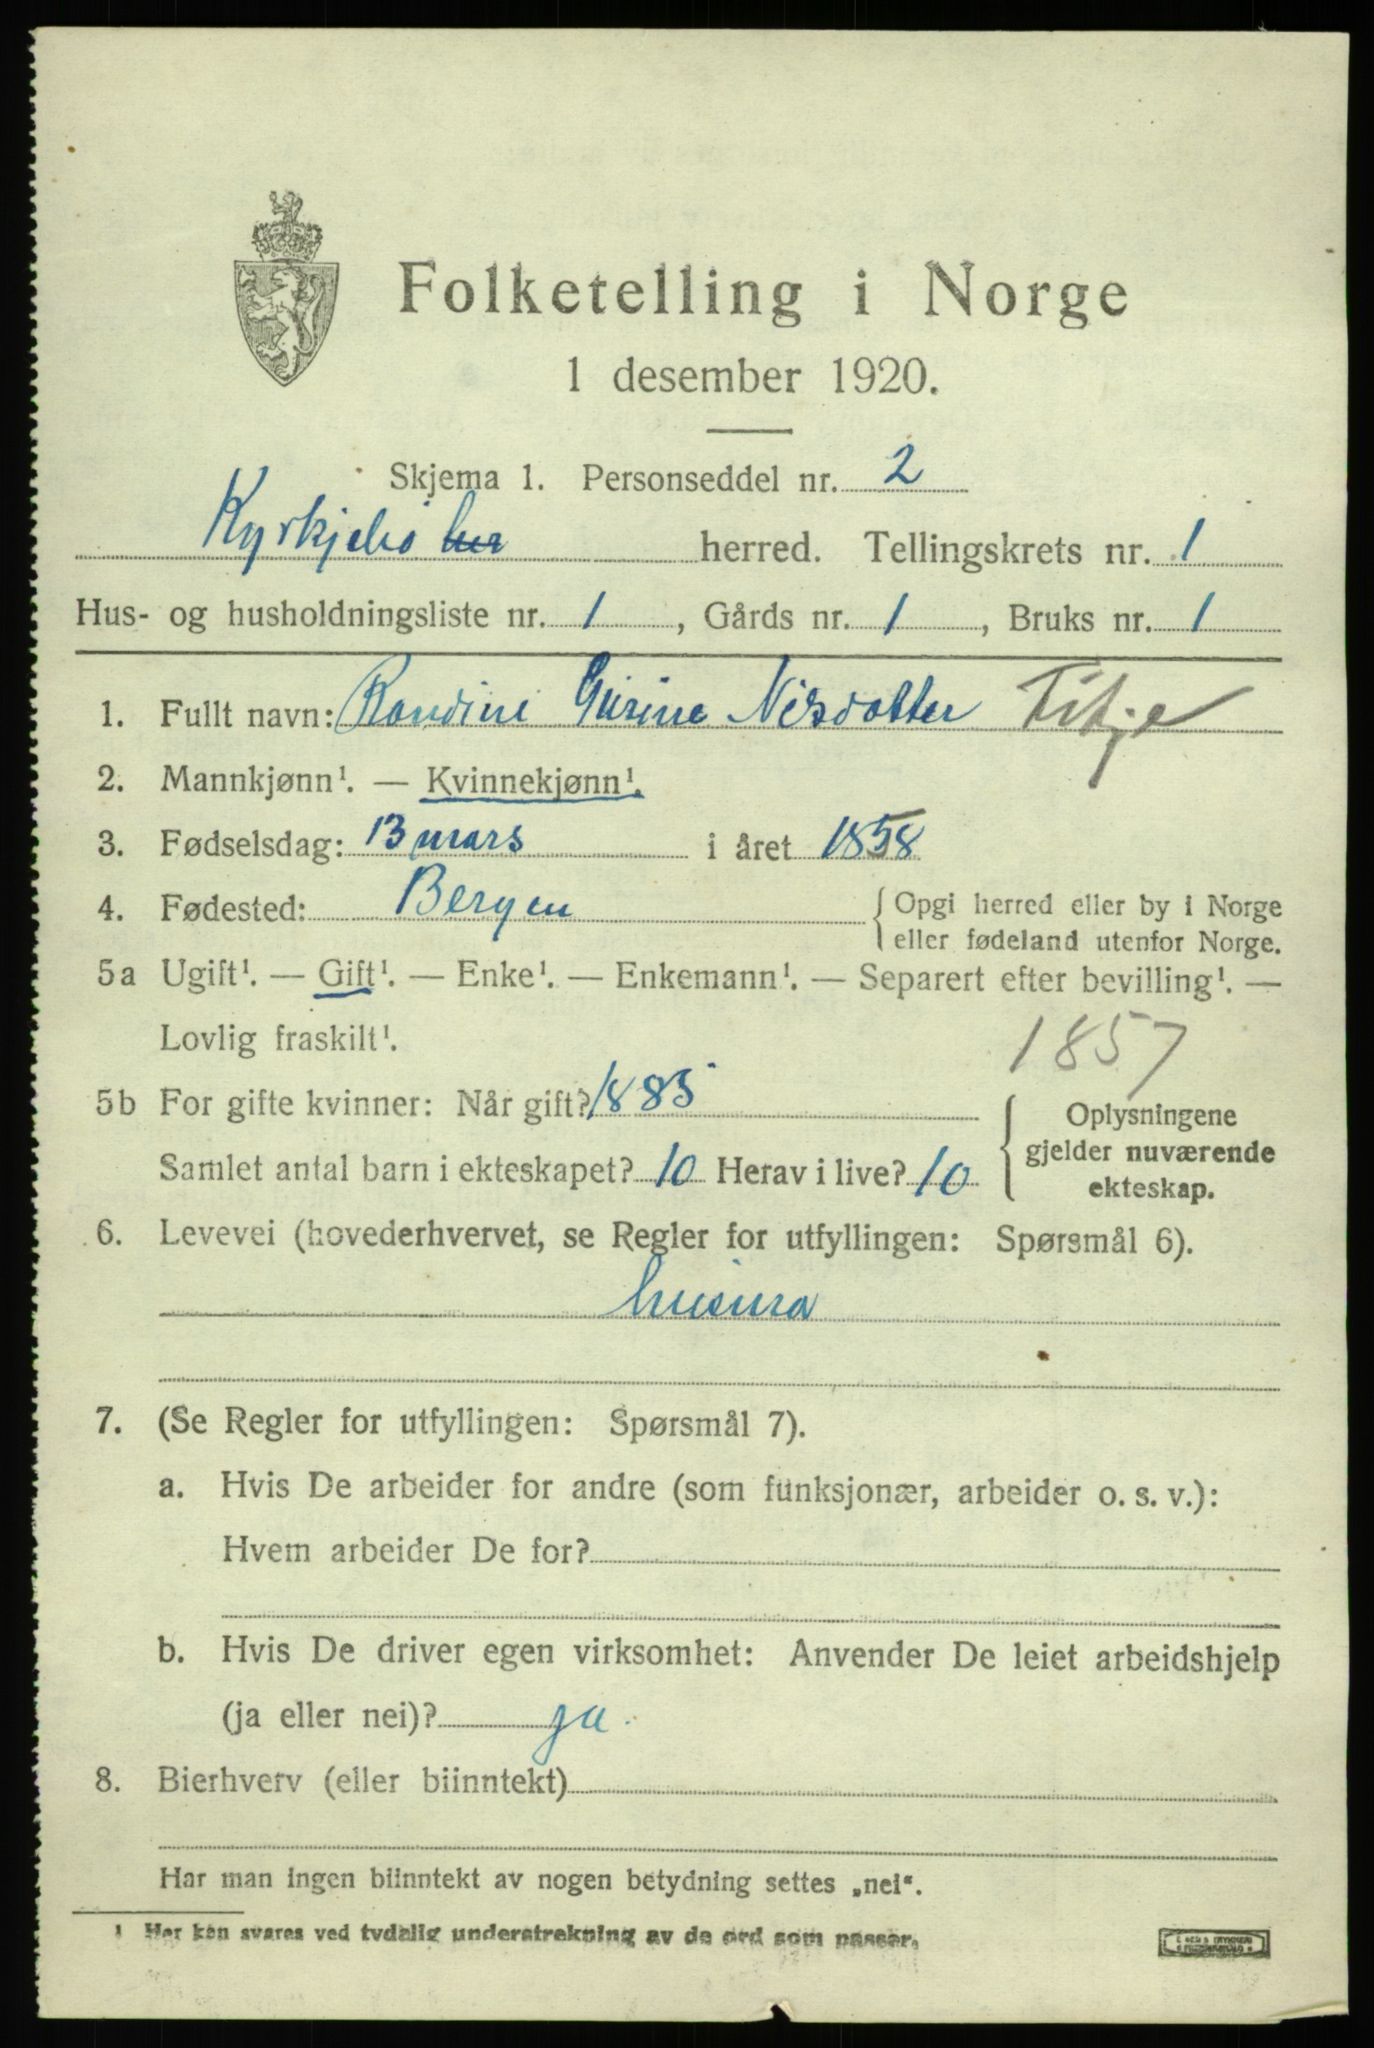 Folketelling i Norge
1 desember 1920.
Skjema 1. Personseddel nr. 2
Kyrkjebø her herred. Tellingskrets nr. 1
Hus- og husholdningsliste nr. 1, Gårds nr. 1, Bruks nr. 1
1. Fullt navn: Randine Gurine Nilsdotter
2. Mannkjønn¹. — Kvinnekjønn¹.
3. Fødselsdag: 13 mars i året 1858
4. Fødested: Bergen { Opgi herred eller by i Norge
eller fødeland utenfor Norge.
5a Ugift¹. — Gift¹. — Enke¹. — Enkemann¹. — Separert efter bevilling¹. —
Lovlig fraskilt¹.
1857
5b For gifte kvinner: Når gift? 1885
Samlet antal barn i ekteskapet? 10 Herav i live? 10
{ Oplysningene
gjelder nuværende
ekteskap.
6. Levevei (hovederhvervet, se Regler for utfyllingen: Spørsmål 6).
husmor
7. (Se Regler for utfyllingen: Spørsmål 7).
a. Hvis De arbeider for andre (som funksjonær, arbeider o. s. v.):
Hvem arbeider De for?
b. Hvis De driver egen virksomhet: Anvender De leiet arbeidshjelp
(ja eller nei)? ja.
8. Bierhverv (eller biinntekt)
Har man ingen biinntekt av nogen betydning settes „nei“.
¹ Her kan svares ved tydelig understrekning av de ord som passer.